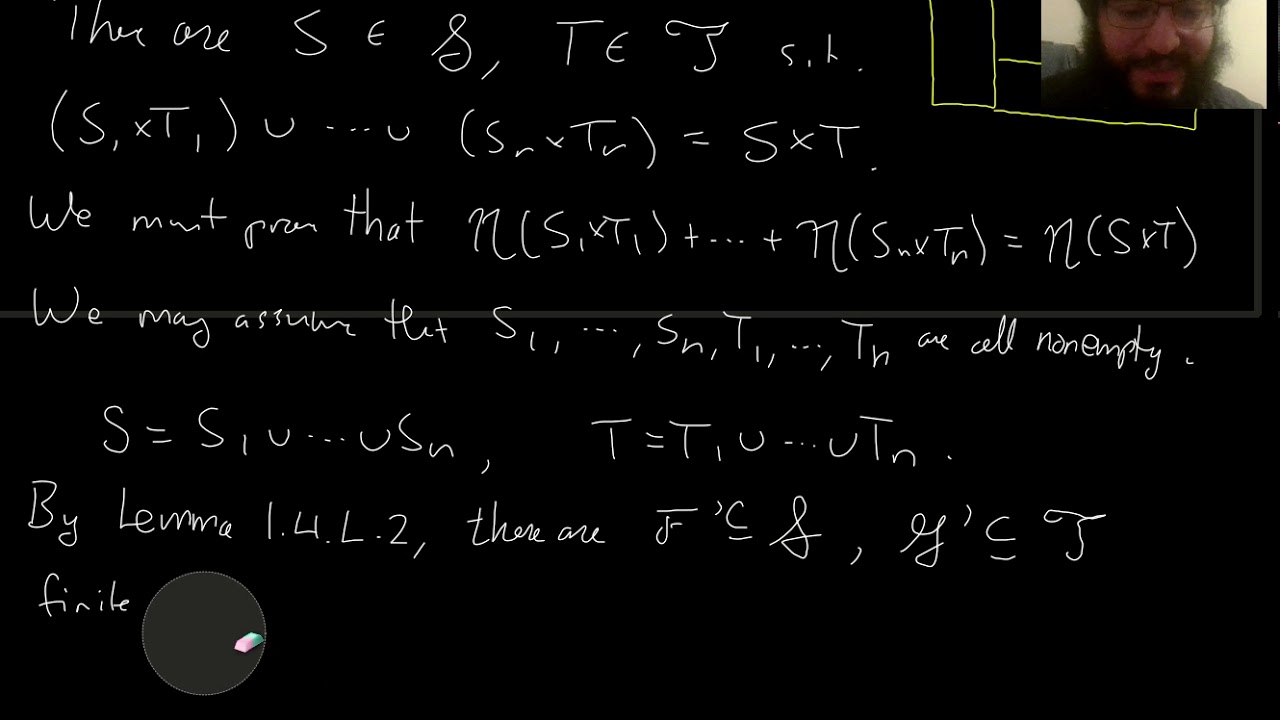 There are S ∈ 𝒮, T ∈ 𝒯 s.t.
(S₁×T₁) ∪ ⋯ ∪ (Sₙ×Tₙ) = S×T.
We must prove that η(S₁×T₁) + ⋯ + η(Sₙ×Tₙ) = η(S×T)
We may assume that S₁, ⋯, Sₙ, T₁, ⋯, Tₙ are all nonempty.
S = S₁ ∪ ⋯ ∪ Sₙ, T = T₁ ∪ ⋯ ∪ Tₙ.
By Lemma 1.4.L.2, there are ℱ' ⊆ 𝒮, 𝒢' ⊆ 𝒯
finite